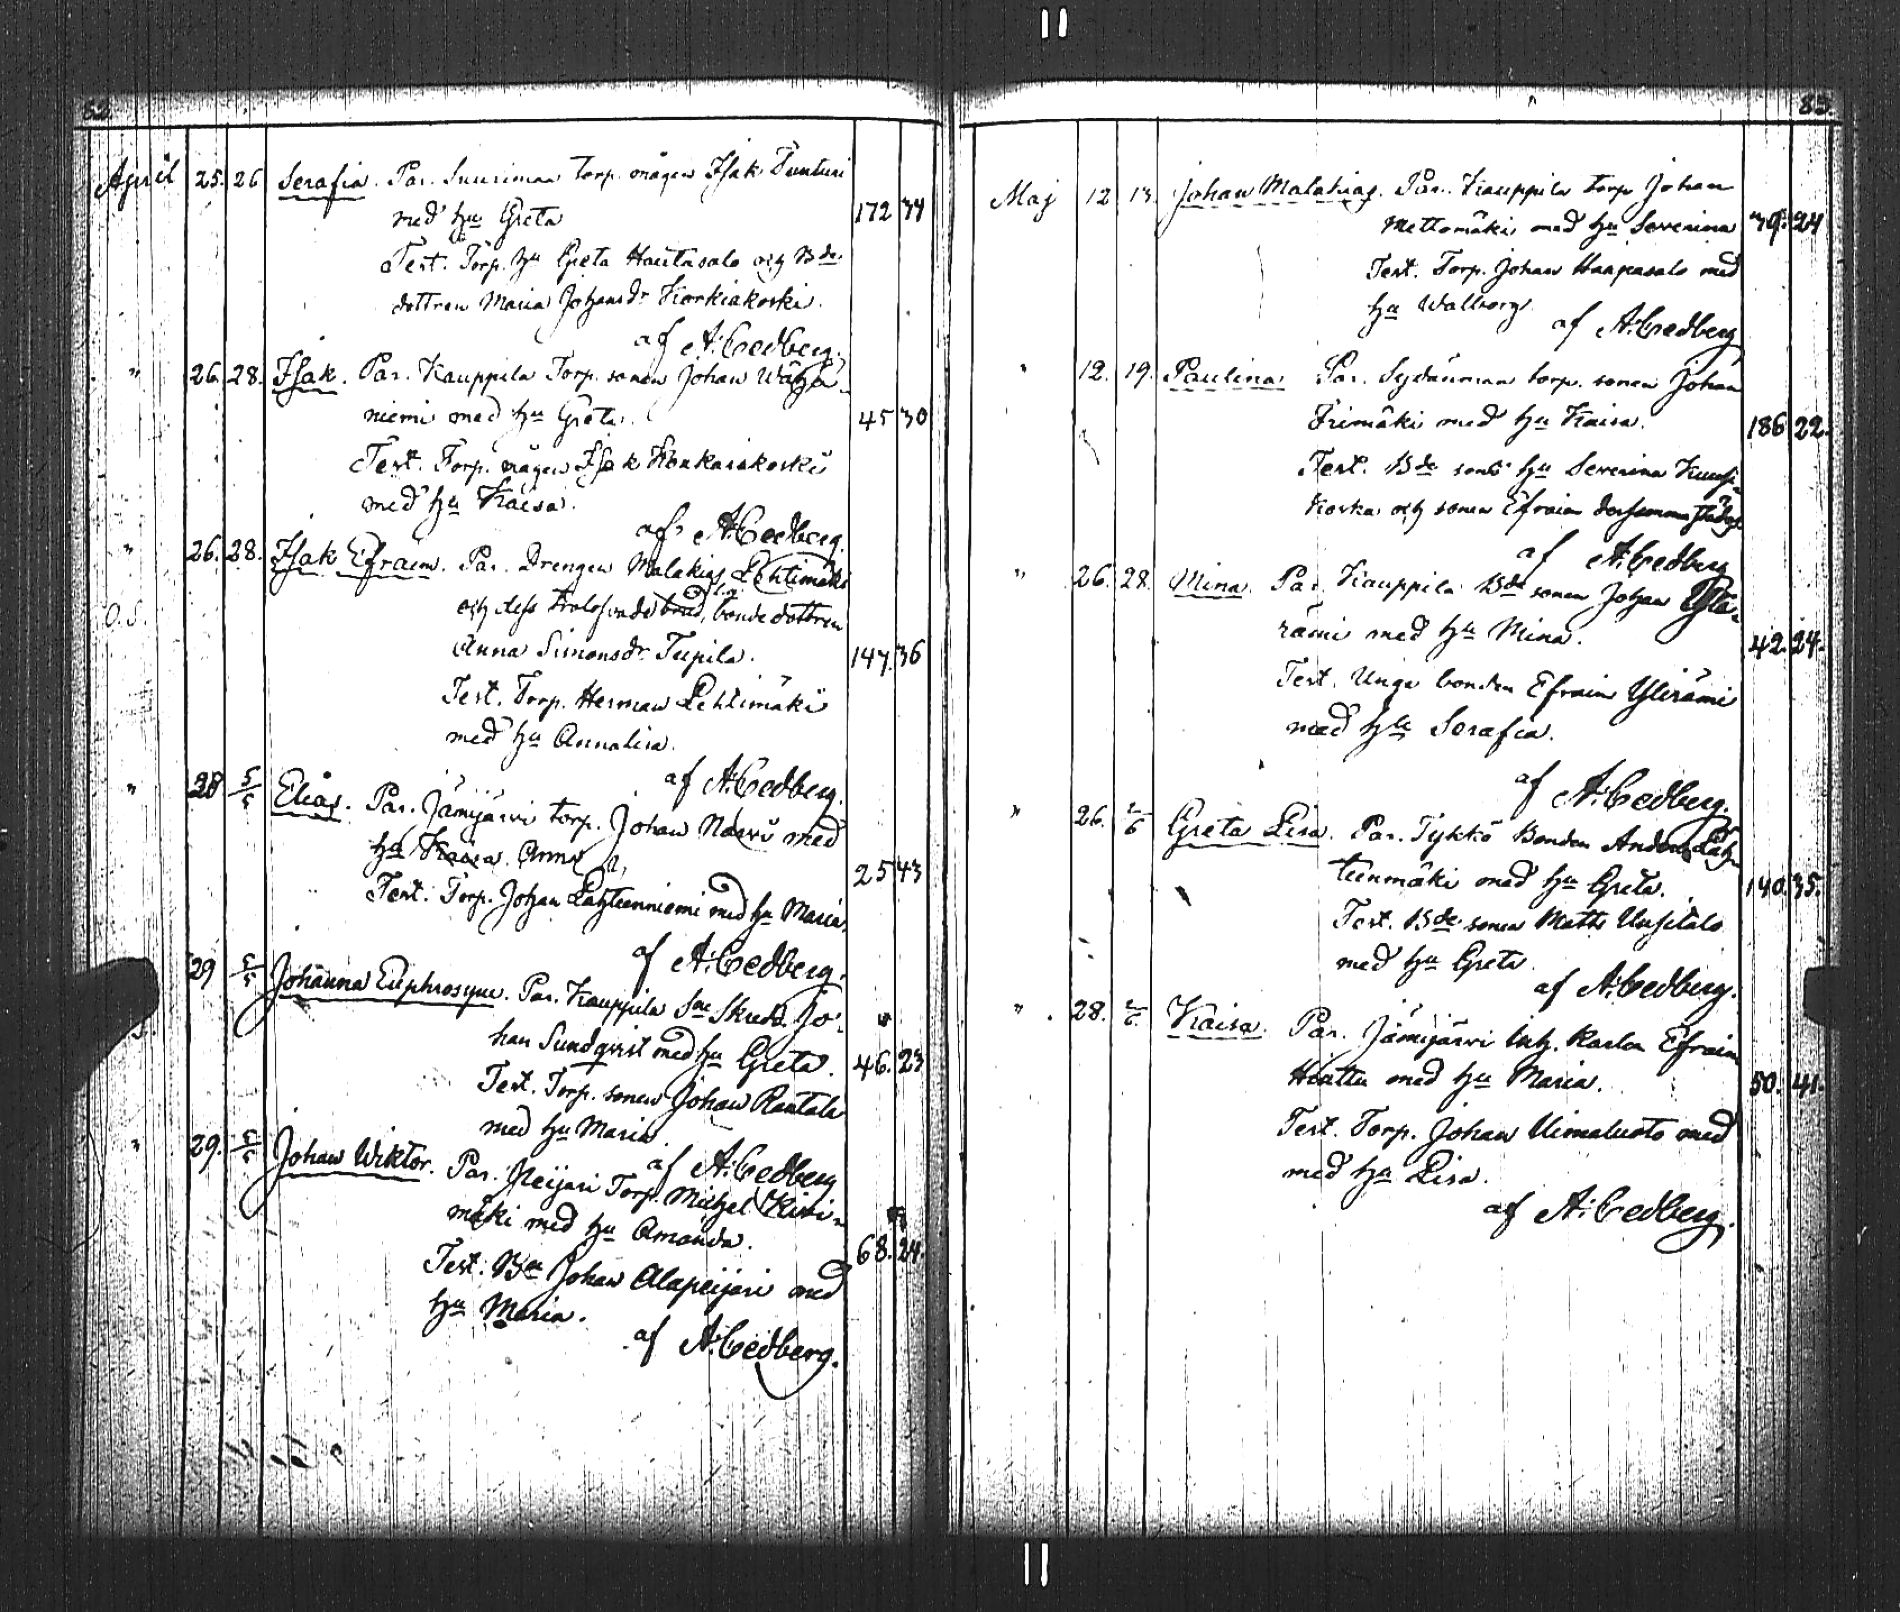 82.
April 25. 26 Serafia. Par. Suurimaa torp. mågen Isak Tunturi
med hu Greta 172 34
Test. Torp. hu Greta Hautasalo och Bde
dottren Maria Johansdr Korkiakoski.
af A. Cedberg.
" 26. 28. Isak. Par. Kauppila Torp. sonen Johan Wähä-
niemi med hu Greta. 45 30
Test. Torp. mågen Isak Kankarikoski
med hu Kaisa.
af A. Cedberg.
" 26. 28. Isak Efraim. Par. Drengen Malakias Lehtimäki
O.S. och dess trolofvade brud, bonde dottren
Anna Simonsdr Tupila. 147. 36
Test. Torp. Herman Lehtimäki
med hu Annalisa.
af A. Cedberg.
" 28 5/5 Elias. Par. Jämijärvi torp. Johan Narvi med
hu Kaisa Anna 25 43
Test. Torp. Johan Lähteenniemi med hu Maria.
af A. Cedberg.
29 5/5 Johanna Euphrosyne. Par. Kauppila Jo-
han Sundqvist med hu Greta. 46. 23
Test. Torp. sonen Johan Rantala
med hu Maria.
af A. Cedberg
" 29. 5/5 Johan Wiktor. Par. Peijari Torp. Michel Kivi-
mäki med hu Amanda. 68. 24.
Test. Bn Johan Alapeijari med
hu Maria.
af A. Cedberg.
83.
Maj 12 13. Johan Malakias. Par. Kauppila torp Johan
Mettomäki med hu Severina 39. 24
Test. Torp. Johan Haapasalo med
hu Walborg.
af A. Cedberg
" 12. 19. Paulina Par. Sydänmaa torp. sonen Johan
Trimäki med hu Kaisa. 186 22.
Test. Bde sons hu Severina Kuusi-
koska och sonen Efraim dersammastädes
af A. Cedberg
" 26. 28. Mina. Par. Kauppila Bde sonen Johan Yli-
rämi med hu Mina. 42. 24.
Test. Unge bonden Efraim Ylirämi
med hu Serafia.
af A. Cedberg.
" 26. 2/6 Greta Lisa. Par. Tykkö Bonden Anders Läh-
teenmäki med hu Greta. 140. 35.
Test. Bde sonen Matts Uusitalo
med hu Greta
af A. Cedberg.
" 28. 2/6 Kaisa. Par. Jämijärvi Inh. Karlen Efraim
Hiattu med hu Maria. 50. 41.
Test. Torp. Johan Uimaluoto med
med hu Lisa.
af A. Cedberg.